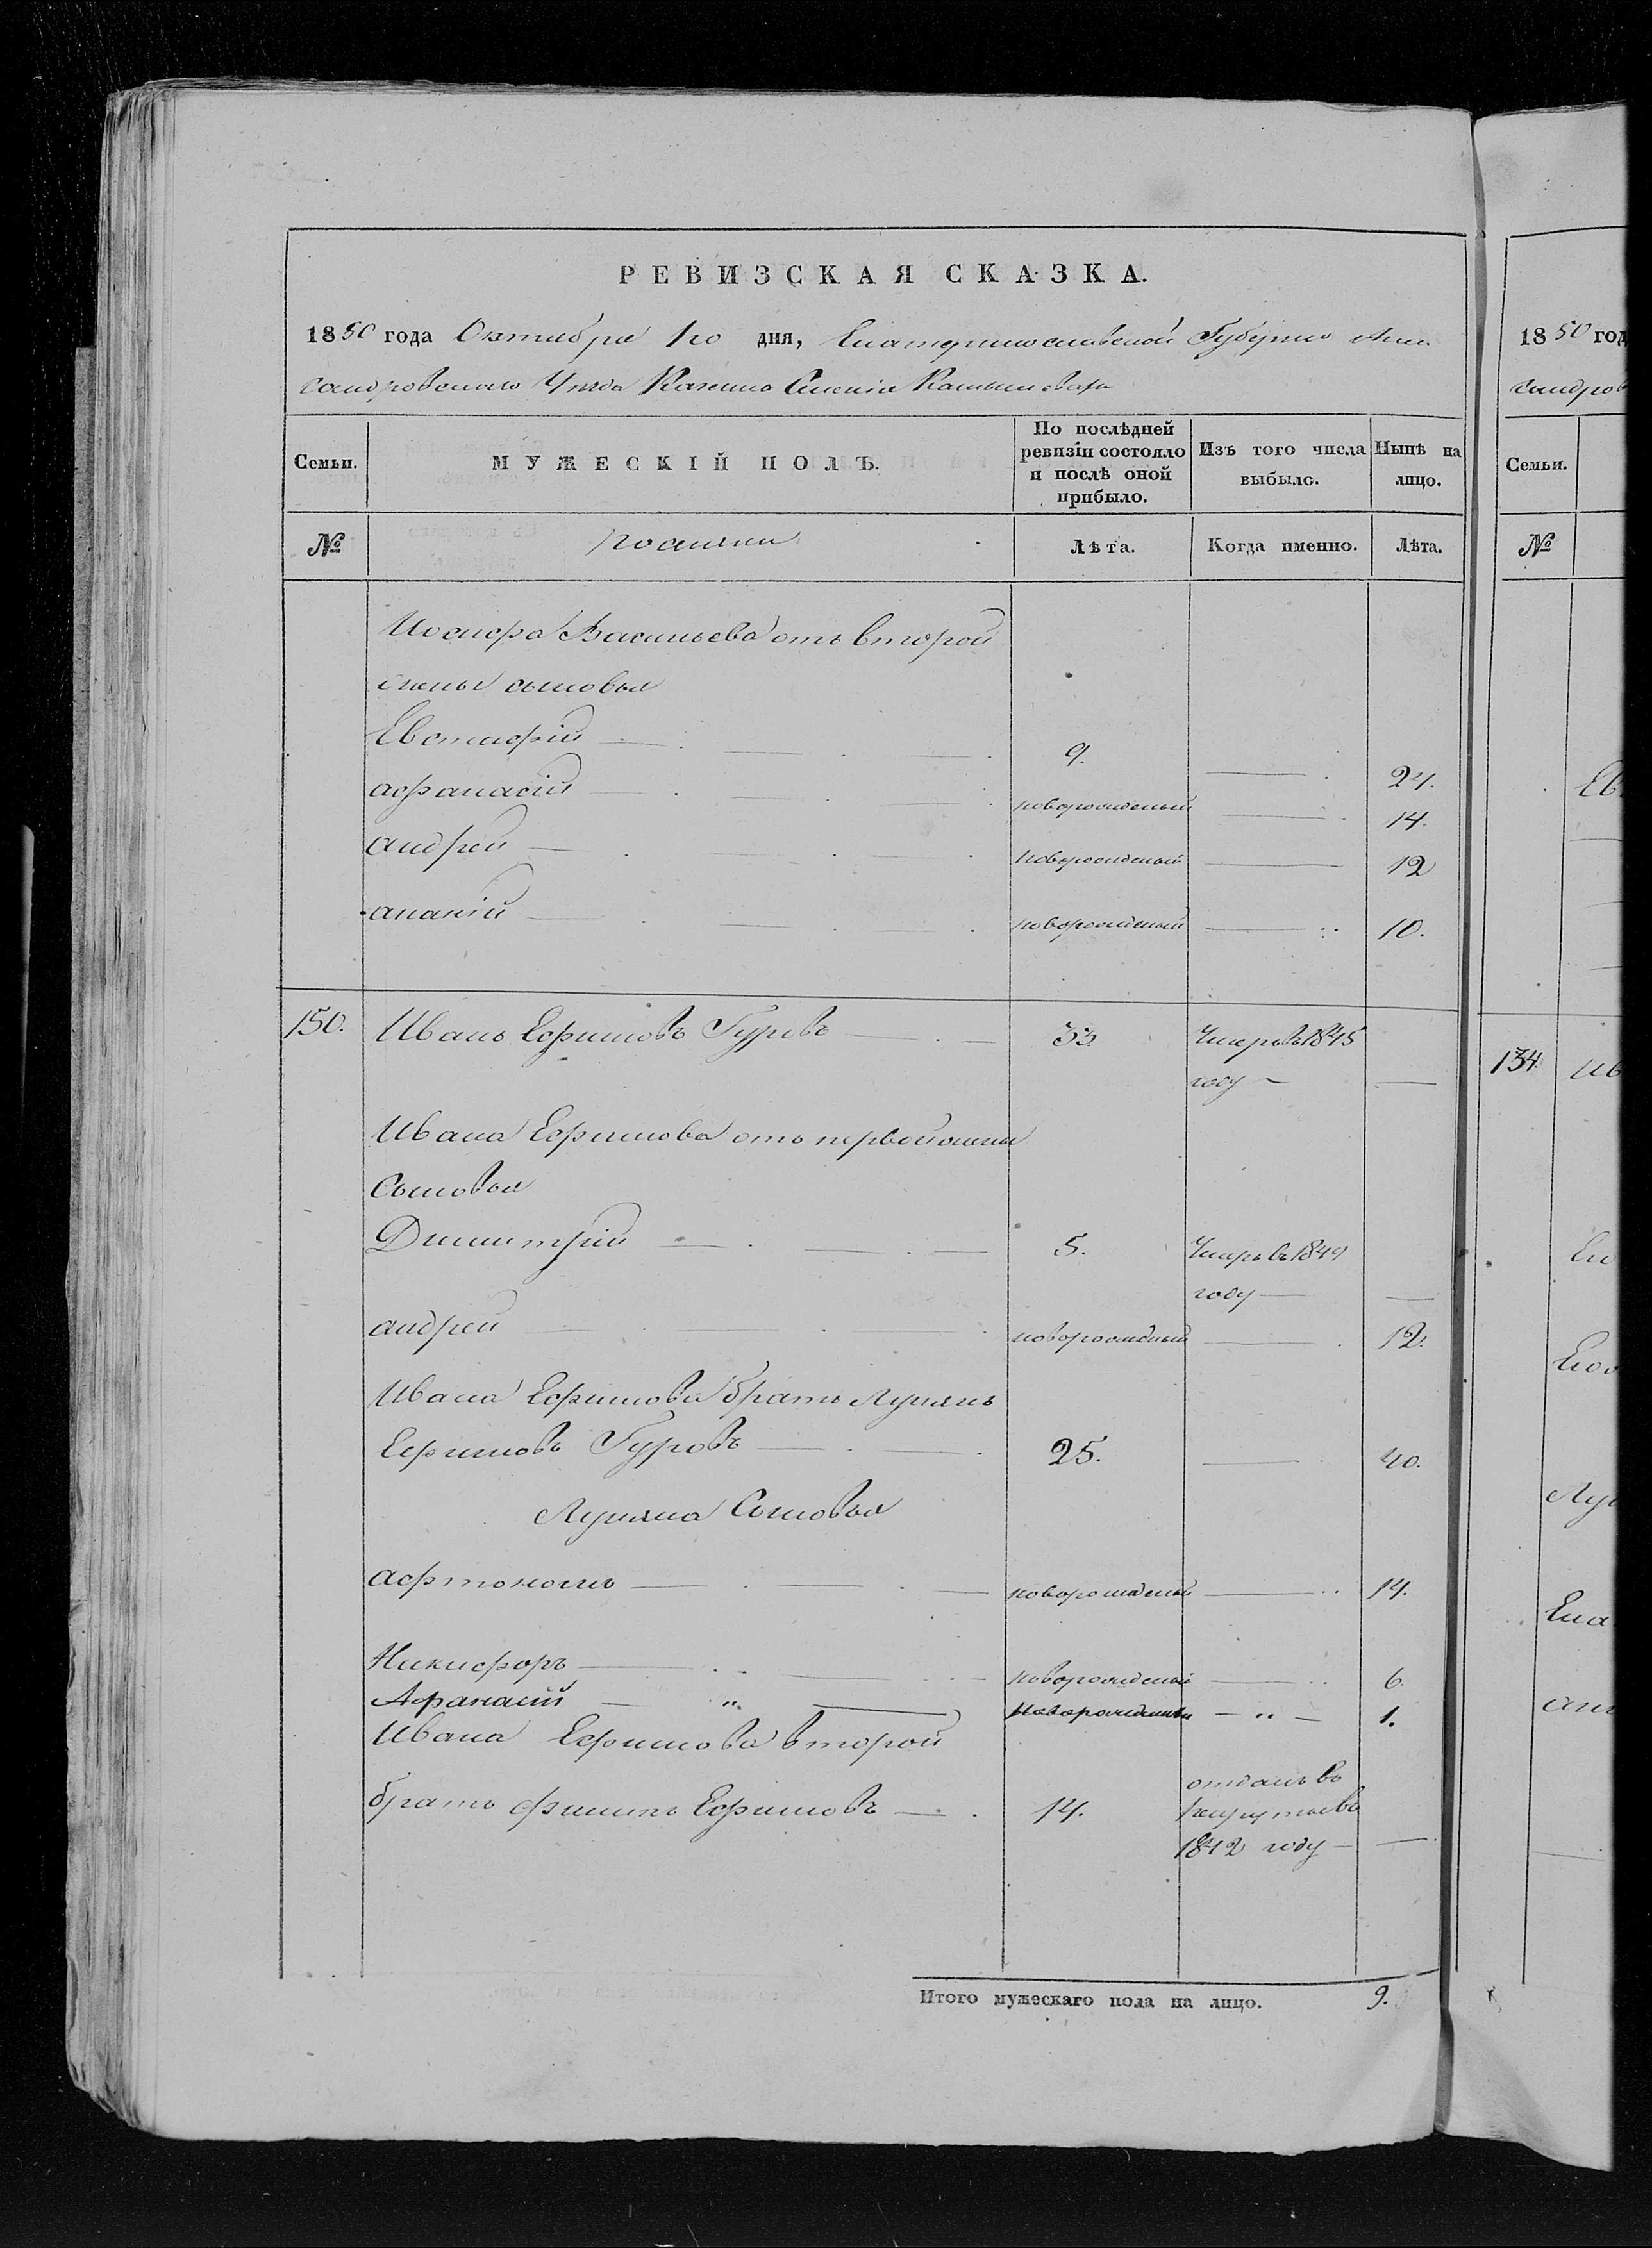 РЕВИЗСКАЯ СКАЗКА.
1850 года Октября 1го дня, Екатеринославской Губернии Алек
сандровскаго Уезда Казенно Селенія
Семьи. МУЖЕСКІЙ ПОЛЪ. По послѣдней ревизіи состояло и послѣ оной прибыло. Изъ того числа выбыло. Нынѣ на лицо.
№ Лѣта. Когда именно. Лѣта.
Иосифа Васильева отъ второй
жены сыновья
Евстафій 9. 24.
афанасій новорожденый 14.
андрей новорожденый 12
ананій новорожденый 10.
150. Иванъ Ефимовъ Гуровъ 33 Умеръ въ 1845
году
Ивана Ефимова отъ первой жены
Сыновья
Димитрій 5. Умеръ въ 1849
году
андрей новорожденый 12.
Ивана Ефимова братъ Лукянъ
Ефимовъ Гуровъ 25. 40.
Лукяна Сыновья
афтономъ новорожденый 14.
Никифоръ новорожденый 6.
Афанасій новорожденый 1.
Ивана Ефимова второй
братъ Ефимовъ 14. отданъ въ
рекруты въ
1842 году
Итого мужескаго пола на лицо. 9.
1850 год
сандров
Семьи.
№
Ев
134 Ив
Ант